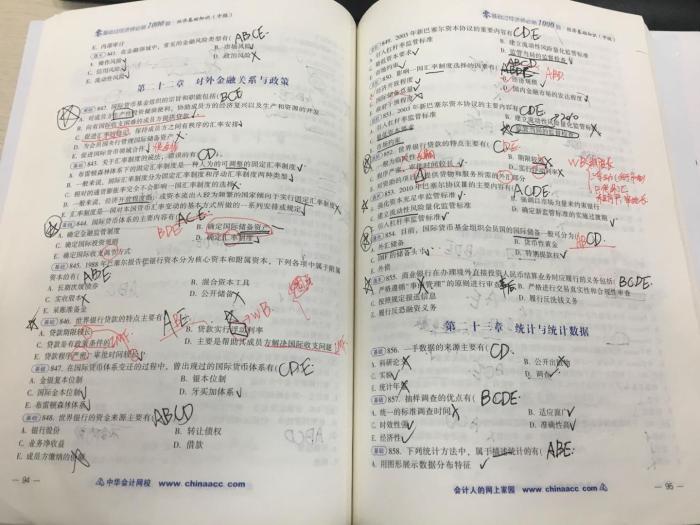 零基础过经济师必刷1000题·经济基础知识(中级)
E. 内部审计
841. 在金融领域中, 常见的金融风险类型有(ABCE
A. 操作风险 B. 市场风险
C. 信用风险 D. 政治风险
E. 流动性风险
第二十二章 对外金融关系与政策
842. 国际货币基金组织的宗旨和职能包括(BCE
B. 向有国际收支困难的成员方提供贷款
C. 促进汇率稳定, 保持成员方之间有秩序的汇率安排
D. 为会员国央行管理国际储备资产
E. 促进国际货币领域合作
843. 关于汇率制度的说法, 错误的有(CD
A. 布雷顿森林体系下的固定汇率制度是一种人为的可调整的固定汇率制度
B. 一般来说, 国际汇率制度分为固定汇率制度和浮动汇率制度两种类型
C. 相对的通货膨胀率完全不会影响一国汇率制度的选择
D. 一般来说, 经济开放程度高, 或资本流出入较为频繁的国家倾向于实行固定汇率制度
E. 汇率制度是一国对本国货币汇率变动的基本方式所做的一系列安排或规定
844. 国际货币体系的主要内容有(ACE
A. 确定金融监管制度 B. 确定国际储备资产
C. 确定国际投资规则 D. 确定汇率制度
E. 确定国际收支调节方式
BDE
845. 1988年巴塞尔报告把银行资本分为核心资本和附属资本, 下列各项中属于附属
资本的有(ABE
A. 长期次级债券 B. 混合资本工具
C. 实收资本 D. 公开储备
E. 呆账准备金
846. 世界银行贷款的特点主要有(ABE
A. 贷款期限较长 B. 贷款实行浮动利率
C. 贷款是有政策条件的 D. 主要是帮助其成员方解决国际收支问题
E. 贷款程序严密, 审批时间较长
847. 在国际货币体系变迁的过程中, 曾出现过的国际货币体系有(CDE
A. 金银复本位制 B. 银本位制
C. 国际金本位制 D. 牙买加体系
E. 布雷顿森林体系
848. 世界银行的资金来源主要有(ABCD
A. 银行股份 B. 转让债权
C. 业务净收益 D. 借款
E. 成员方缴纳的份额
— 94 — 中华会计网校 www.chinaacc.com
零基础过经济师必刷1000题·经济基础知识(中级)
849. 2003年新巴塞尔资本协议的重要内容有(CDE
A. 引入杠杆率监管标准 B. 建立流动性风险量化监管标准
D. 监管当局的监督检查
850. 影响一国汇率制度选择的因素有( ABD
A. 经济开放程度 B. 经济规模
C. 国际储备总量 D. 国内金融市场的发达程度
851. 2003年新巴塞尔资本协议的主要内容有(CDE
A. 引入杠杆率监管标准 B. 建立流动性风险量化监管标准
C. 最低资本要求 D. 监管当局的监督检查
E. 市场约束
852. 世界银行贷款的特点主要有(CDE
B. 期限较短
C. 程序严密, 审批时间较长 D. 实行浮动利率
853. 2010年巴塞尔协议Ⅲ的主要内容有(ACDE
A. 强化资本充足率监管标准 B. 强调以市场力量来约束银行
C. 建立流动性风险量化监管标准 D. 确定新监管标准的实施过渡期
E. 引入杠杆率监管标准
854. 目前, 国际货币基金组织会员国的国际储备一般可分为(BCD
A. 外汇储备 B. 货币性黄金
C. IMF的储备头寸 D. 特别提款权
E. 外债
855. 商业银行在办理境外直接投资人民币结算业务时应履行的义务包括(BCDE
A. 严格遵循“事前管理”的原则进行审查 B. 严格进行交易真实性和合规性审查
C. 按照规定报送信息 D. 履行反洗钱义务
E. 履行反恐融资义务
第二十三章 统计与统计数据
856. 一手数据的来源主要有(CD
A. 科研论文 B. 公开出版物
C. 实验 D. 调查
E. 统计年鉴
857. 抽样调查的优点有(BCDE
A. 统一的标准调查时间 B. 适应面广
C. 时效性强 D. 准确性高
E. 经济性
858. 下列统计方法中, 属于描述统计的有(ABE
A. 用图形展示数据分布特征
会计人的网上家园 www.chinaacc.com — 95 —